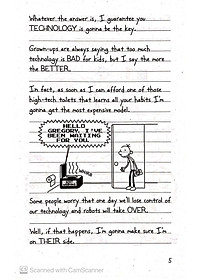 Whatever the answer is, I guarantee you
TECHNOLOGY is gonna be the key.
Grown-ups are always saying that too much
technology is BAD for kids, but I say the more
the BETTER.
In fact, as soon as I can afford one of those
high-tech toilets that learns all your habits I'm
gonna get the most expensive model.
HELLO
GREGORY. I'VE
BEEN WAITING
FOR YOU.
Some people worry that one day we'll lose control of
our technology and robots will take OVER.
Well, if that happens, I'm gonna make sure I'm
on THEIR side.
5
CS Scanned with CamScanner